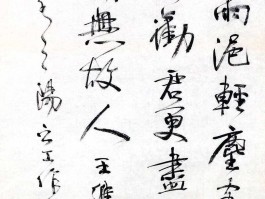 雨浥輕塵客
勸君更盡
無故人 王維
陽